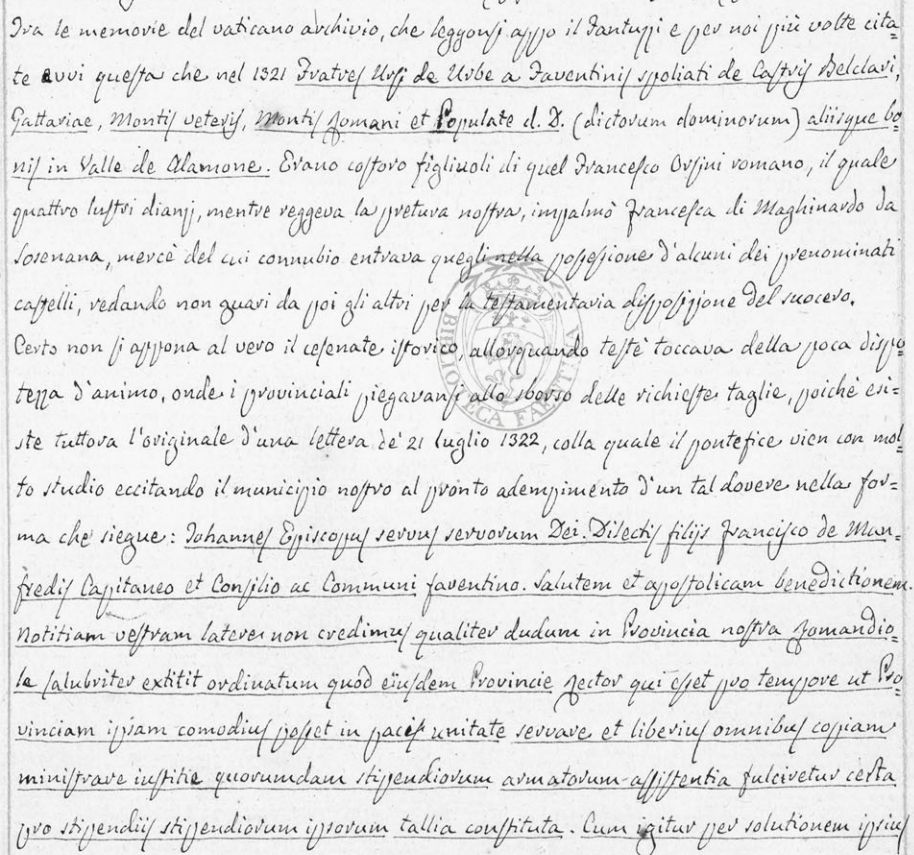 Tra le memorie del vaticano archivio, che leggonsi appo il Fantuzzi e per noi più volte cita=
te avvi questa che nel 1321 Fratres Ursi de Urbe a Faventinis spoliati de Castris Belclari,
Gattariae, Montis veteris, Montis Romani et Populate d. D. (dictorum dominorum) aliisque bo=
nis in Valle de Alamone. Erano costoro figliuoli di quel Francesco Orsini romano, il quale
quattro lustri dianzi, mentre reggeva la pretura nostra, impalmò Francesca di Maghinardo da
Sosenana, mercè del cui connubio entrava quegli nella possessione d'alcuni dei prenominati
castelli, redando non guari da poi gli altri per la testamentaria disposizione del suocero.
Certo non si appona al vero il cesenate istorico, allorquando testè toccava della poca dispo=
tezza d'animo, onde i provinciali piegavansi allo sborso delle richieste taglie, poichè esi=
ste tuttora l'originale d'una lettera de' 21 luglio 1322, colla quale il pontefice vien con mol=
to studio eccitando il municipio nostro al pronto adempimento d'un tal dovere nella for=
ma che siegue: Johannes Episcopus servus servorum Dei. Dilectis filijs Francisco de Man=
fredis Capitaneo et Consilio ac Communi faventino. Salutem et apostolicam benedictionem.
Notitiam vestram latere non credimus qualiter dudum in Provincia nostra Romandio=
le salubriter extitit ordinatum quòd eiusdem Provincie Rector qui esset pro tempore ut Pro=
vinciam ipsam comodius posset in pacis unitate servare et liberius omnibus copiam
ministrare iustitie quorumdam stipendiorum armatorum assistentia fulciretur certa
pro stipendiis stipendiorum ipsorum tallia constituta. Cum igitur per solutionem ipsius
BIBLIOTECA FAENTINA